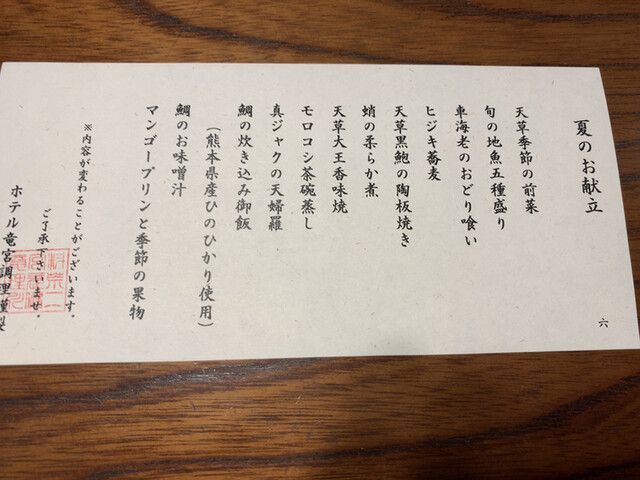 夏のお献立
六
天草季節の前菜
旬の地魚五種盛り
車海老のおどり喰い
ヒジキ蕎麦
天草黒鮑の陶板焼き
蛸の柔らか煮
天草大王香味焼
モロコシ茶碗蒸し
真ジャクの天婦羅
鯛の炊き込み御飯
(熊本県産ひのひかり使用)
鯛のお味噌汁
マンゴープリンと季節の果物
※内容が変わることがございます。
ご了承下さいませ。
ホテル竜宮調理謹製